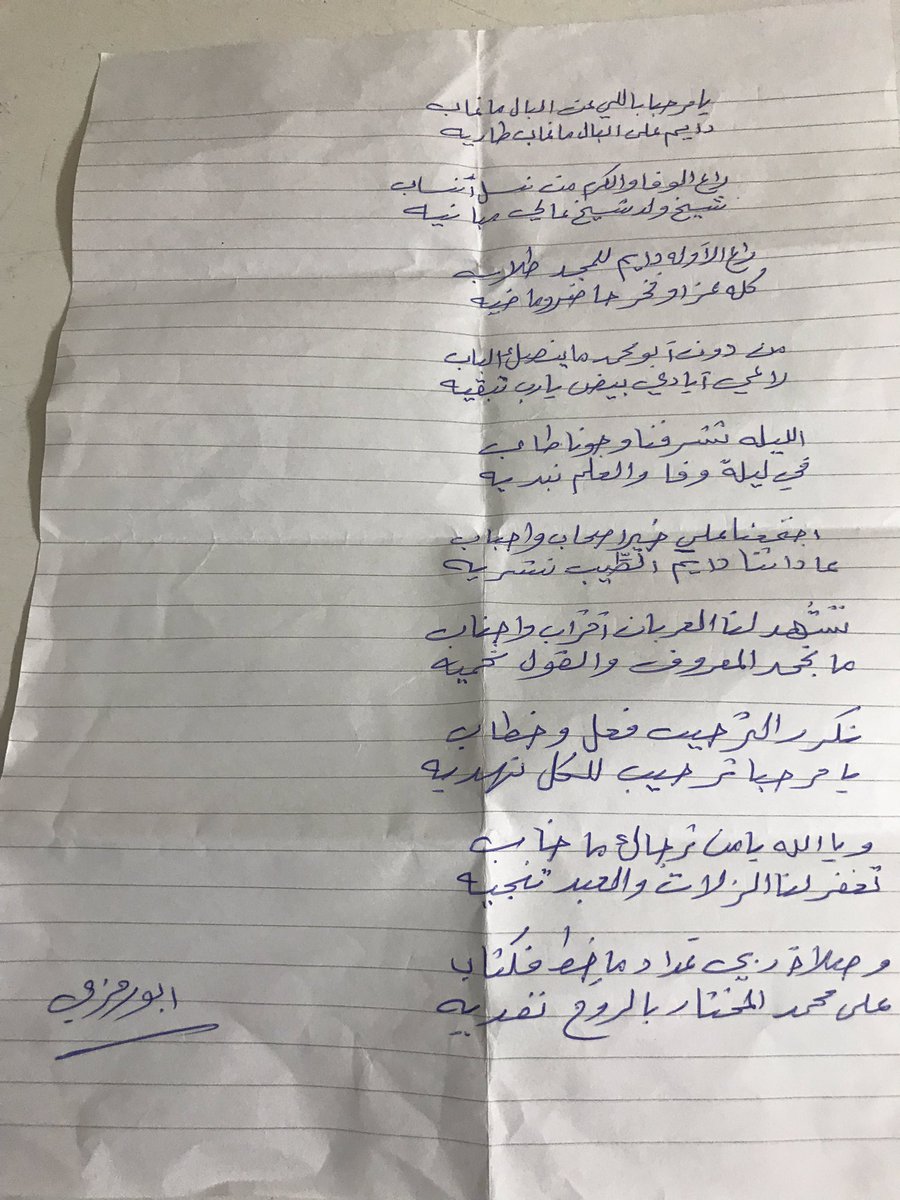 يا مرحبا باللي عن البال ما غاب
دايم على البال ما غاب طاريه
راع الوفا والكرم من نسل أنساب
شيخ ولد شيخ عالي مبانيه
راع الأوله دايم للمجد طلاب
كله عز او فخر حاضر وماضيه
من دون أبو محمد ما ينصك الباب
لاعي أيادي بيض يا رب تبقيه
الليله تشرفنا وجونا طاب
في ليلة وفا والعلم نبديه
اجتمعنا على خير اصحاب واحباب
عاداتنا دايم الطّيب نشريه
تشهد لنا العربان أقراب واجناب
ما نجحد المعروف والقول نحميه
نكرر الترحيب فعل وخطاب
يا مرحبا ترحيب للكل نهديه
ويا الله يا من ترجاك ما خاب
تغفر لنا الزلات والعبد تنجيه
وصلاة ربي عداد ما خط فكتاب
على محمد المختار بالروح نفديه
ابو رمزي